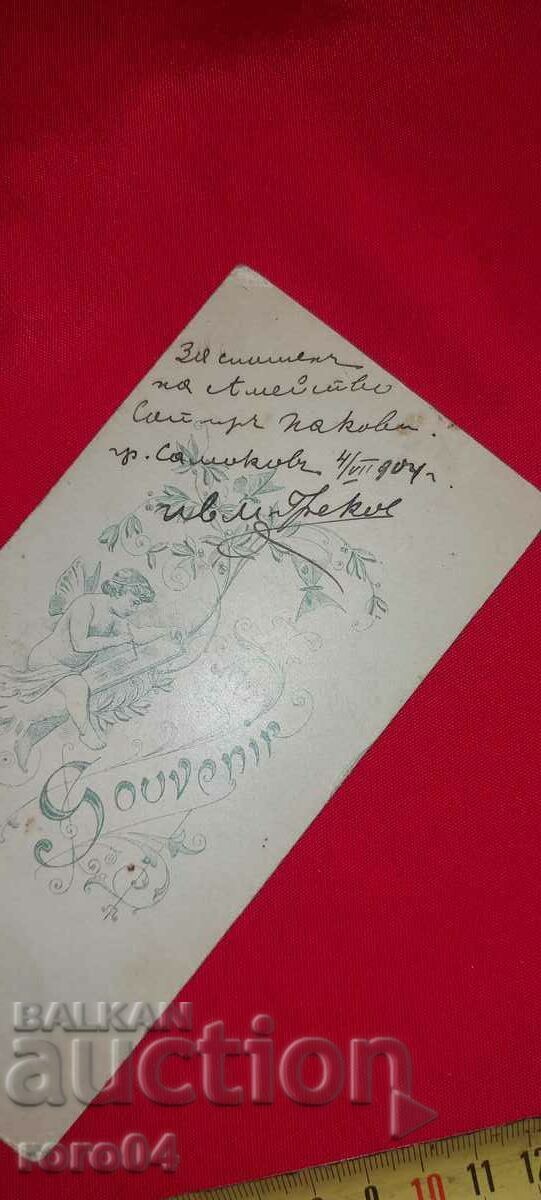 За споменъ
на Амейство
Сотиръ Накови.
гр. Самоковъ 4/VII 904 г.
Ив. М. Греков
Souvenir
BALKAN
auction
roro04
9 10 11 12